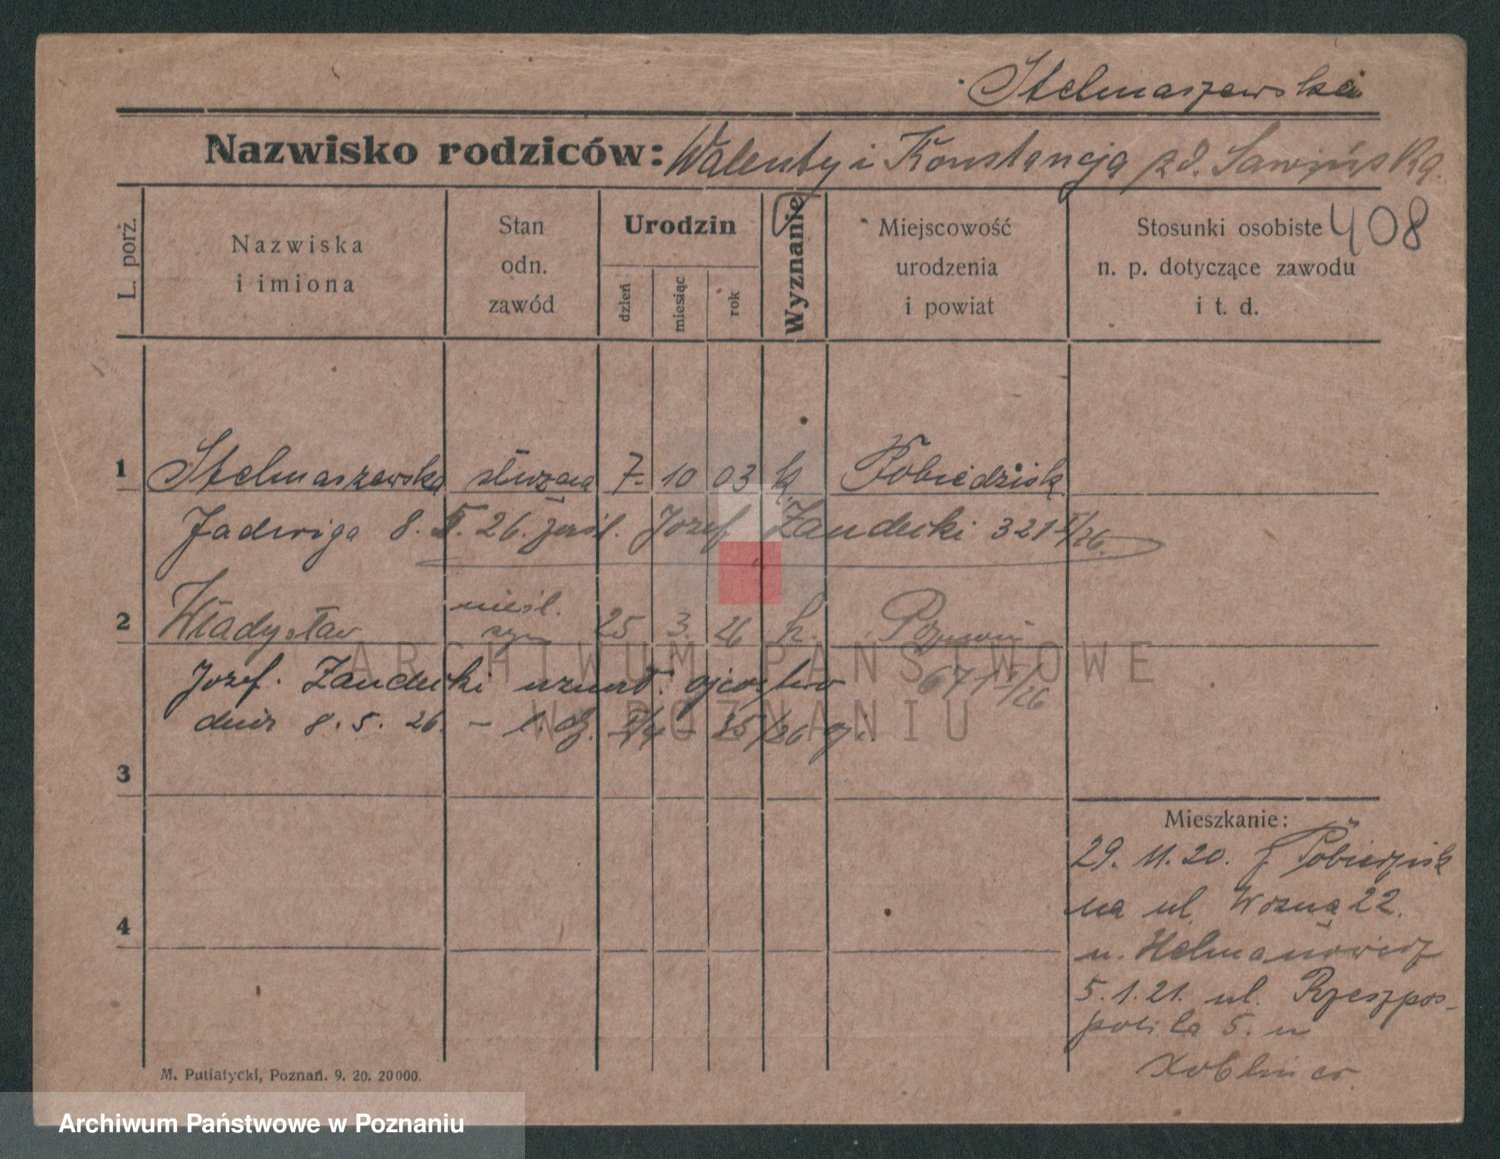 Stelmaszewska
Nazwisko rodziców: Walenty i Konstancja zd. Sawińska.
408
L. porż.
Nazwiska i imiona
Stan odn. zawód
Urodzin
dzień miesiąc rok
Wyznanie
Miejscowość urodzenia i powiat
Stosunki osobiste n. p. dotyczące zawodu i t. d.
1 Stelmaszewska służąca 7. 10 03 k. Pobiedzisk
Jadwiga 8. 5. 26. Józef Zandecki 321 /26.
2 Władysław nieśl. syn 25 3. 26 k. Poznań
671 /26
Józef Zandecki uznał ojcostwo
dnia 8. 5. 26.
3
4
Mieszkanie:
29. 11. 20. z Pobiedzisk
na ul. Woźną 22.
u.
5. 1. 21. ul. Rzeszpos-
polita 5. u
M. Putiatycki, Poznań. 9. 20. 20000.
ARCHIWUM PAŃSTWOWE
W POZNANIU
Archiwum Państwowe w Poznaniu